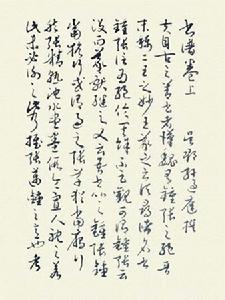 書譜卷上 吳郡孫過庭撰
夫自古之善書者漢魏有鍾張之絕晉
末稱二王之妙王羲之云頃尋諸名書
鍾張信為絕倫其餘不足觀可謂鍾張云
沒而羲獻繼之又云吾書比之鍾張鍾
當抗行或謂過之張草猶當雁行
然張精熟池水盡墨假令寡人耽之若
此未必謝之此乃推張邁鍾之意也考